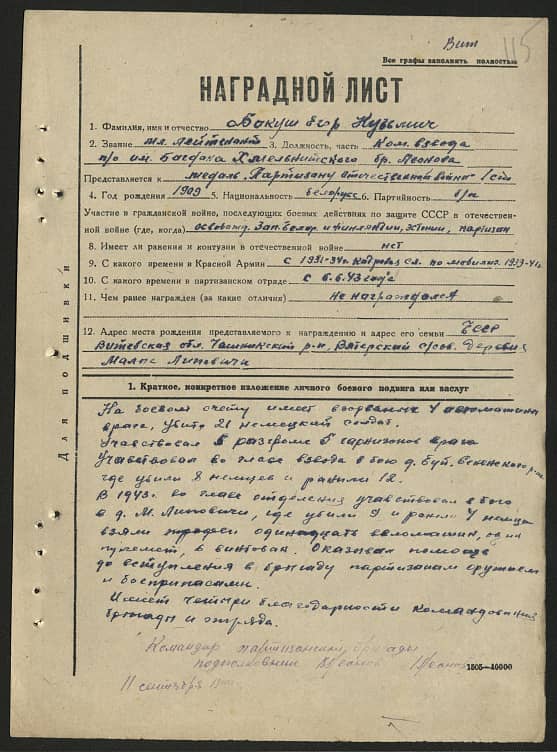 Вит
115
Все графы заполнять полностью
НАГРАДНОЙ ЛИСТ
1. Фамилия, имя и отчество Бокуш Кузьмич
2. Звание мл. лейтенант 3. Должность, часть Ком. взвода
п/о им. Богдана Хмельнитского бр. Леонова
Представляется к медаль „Партизану отечественной войны" I ст.
4. Год рождения 1909 5. Национальность белорус 6. Партийность б/п
Участие в гражданской войне, последующих боевых действиях по защите СССР и отечествен-
ной войне (где, когда) освобожд. Зап. Белор. и Финляндии, Эстонии, партизан
8. Имеет ли ранения и контузии в отечественной войне нет
9. С какого времени в Красной Армии с 1931-34г. кадровая сл. по мобилиз. 1939-41г.
10. С какого времени в партизанском отряде с 6.6.43 года
11. Чем ранее награжден (за какие отличия) не награждался
12. Адрес места рождения представляемого к награждению и адрес его семьи БССР
Витебская обл. Чашникский р-н, Вятерский с/сов. Деревня
Малые Липовичи
Для подшивки
1. Краткое, конкретное изложение личного боевого подвига или заслуг
На боевом счету имеет взорванных 4 автомашины
врага, убито 21 немецкий солдат.
Участвовал в разгроме 5 гарнизонов врага
Участвовал во главе взвода в бою д. Буй,
где убили 8 немцев и ранили 12.
В 1943г. во главе отделения участвовал в бою
в д. М. Липовичи, где убили 9 и ранили 4 немца
взяли трофеи одинадцать веломашин, один
пулемет, 6 винтовок. Оказывал помощь
до вступления в бригаду партизанам оружием
и боеприпасами.
Имеет четыри благодарности командования
бригады и отряда.
Командир партизанской бригады
подполковник Леонов
11 сентября
1805—40000